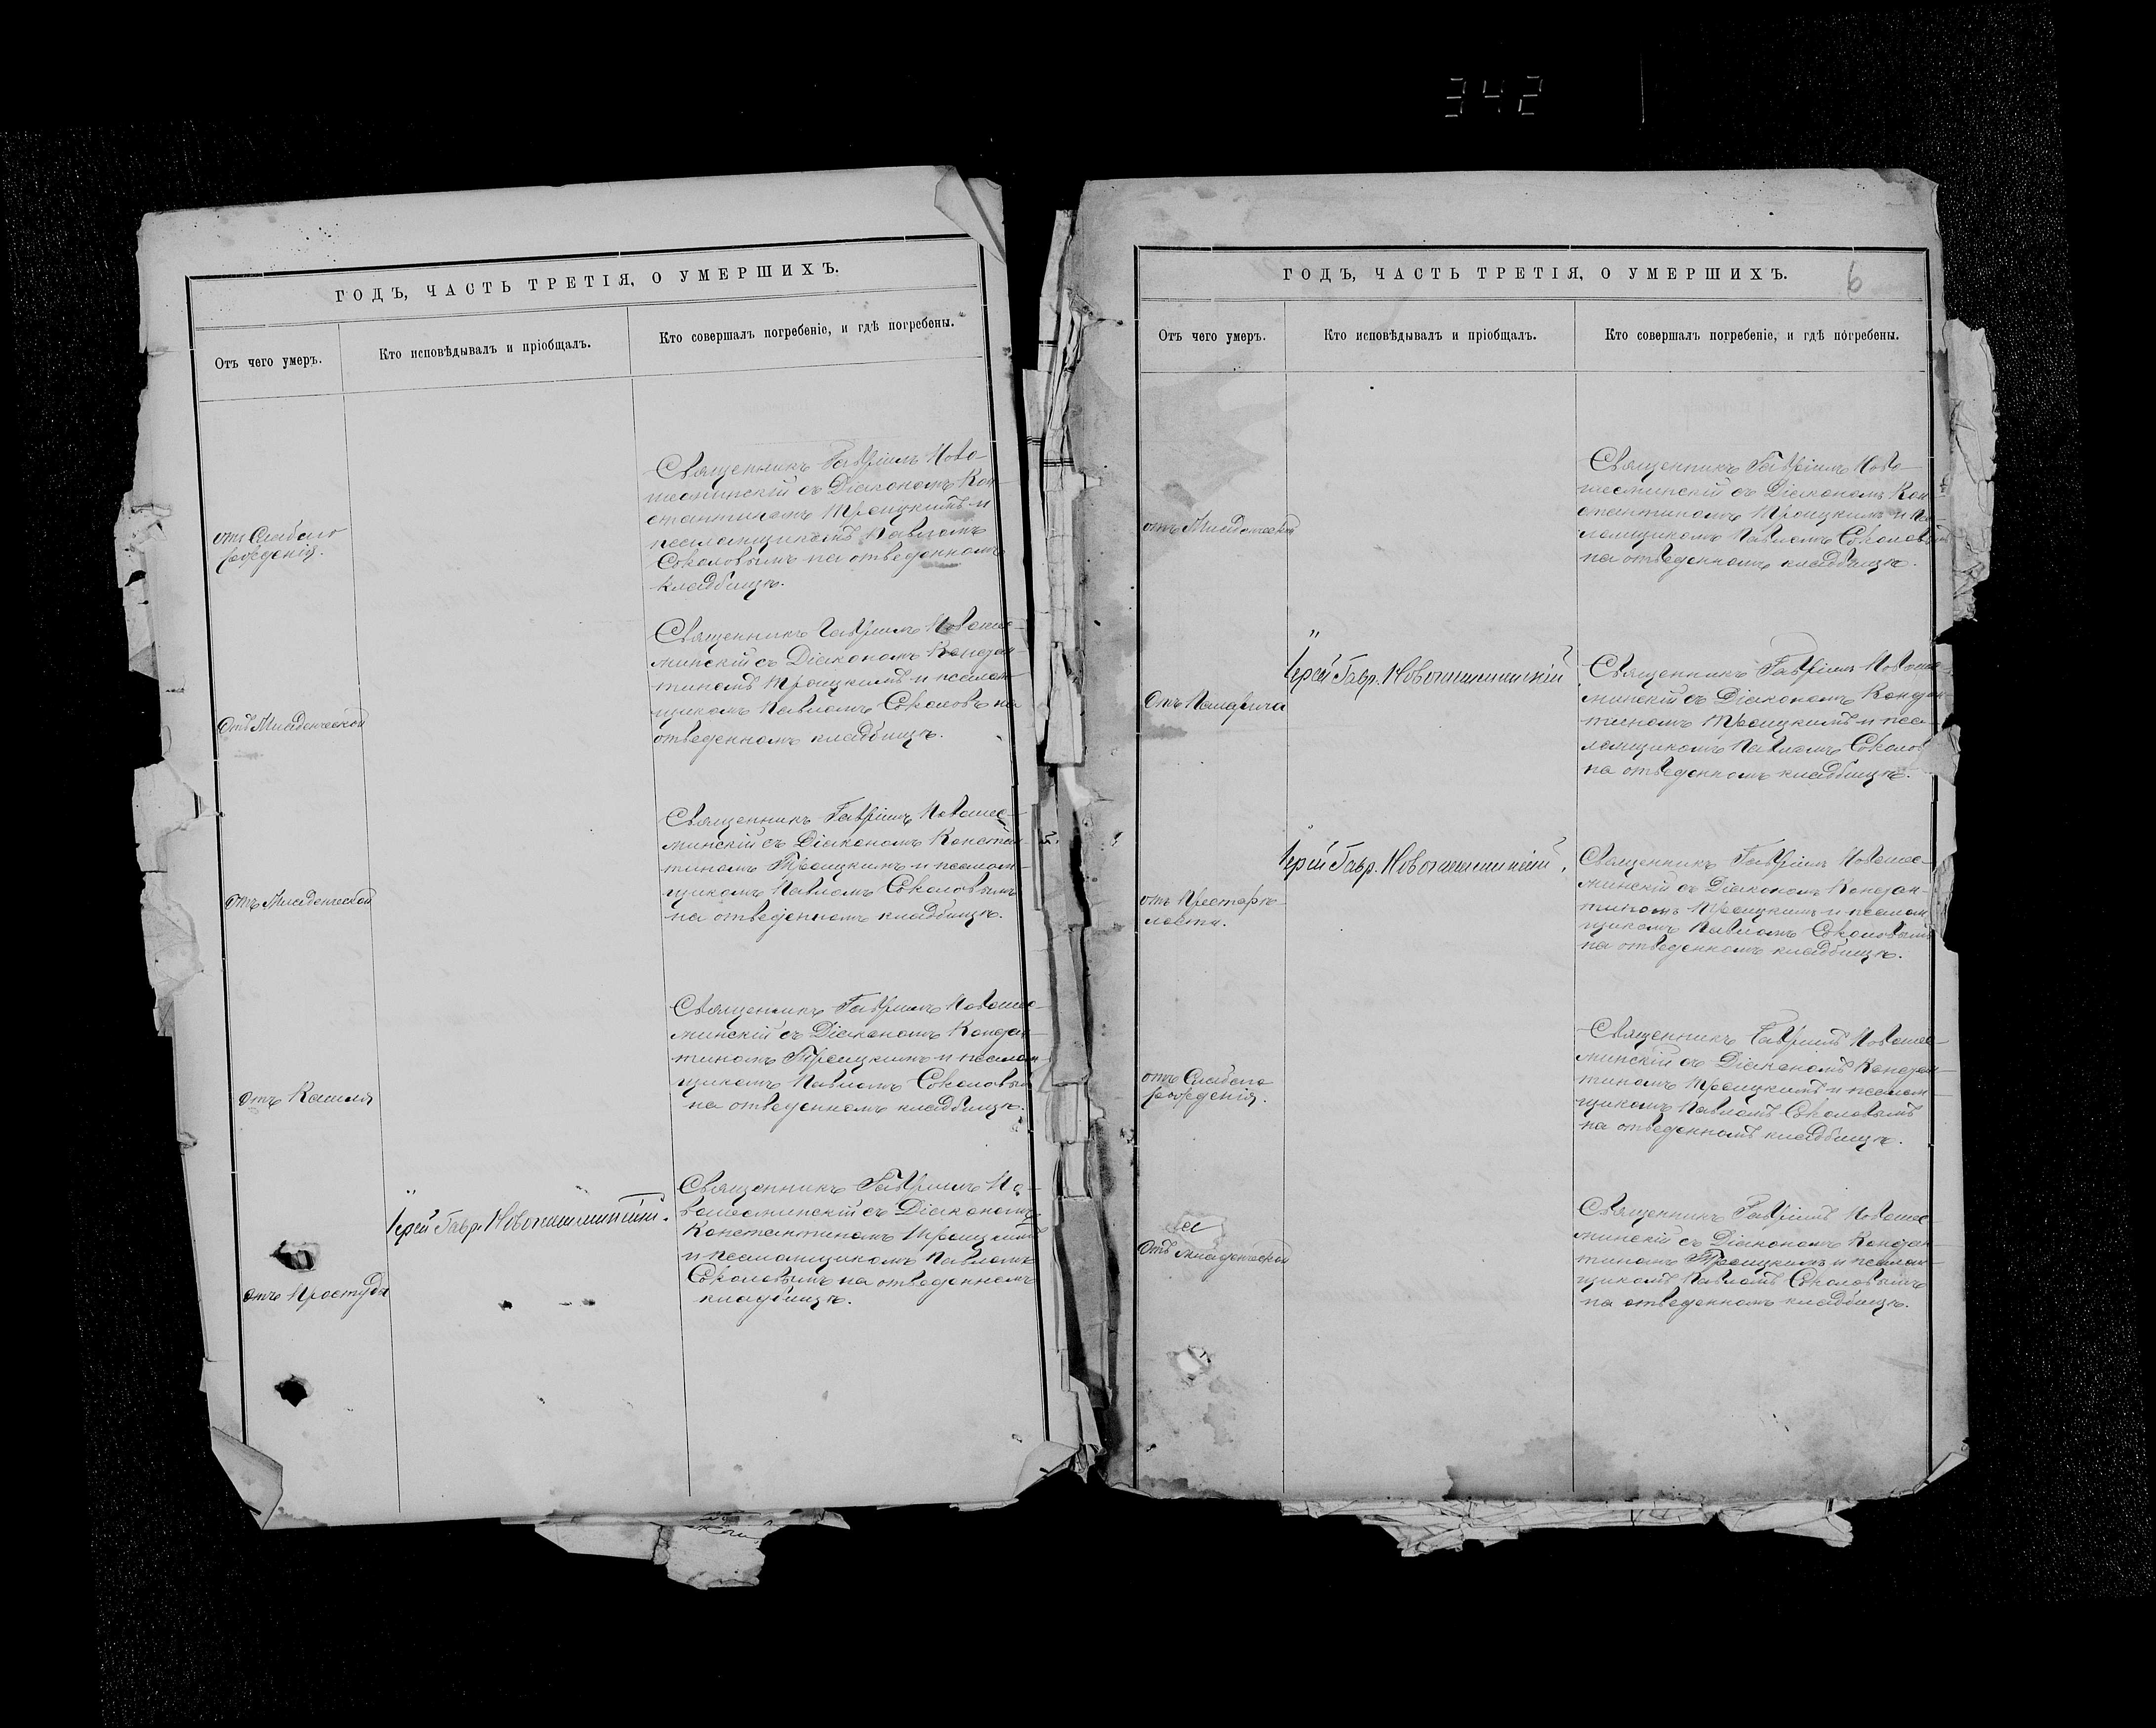 342
ГОДЪ, ЧАСТЬ ТРЕТІЯ, О УМЕРШИХЪ.
Отъ чего умеръ.
Кто исповѣдывалъ и пріобщалъ.
Кто совершалъ погребеніе, и гдѣ погребены.
отъ Слабаго
рожденія.
Священникъ Гавріилъ Ново-
шешминскій съ Діакономъ Кон-
стантиномъ Троицкимъ и
псаломщикомъ Павломъ
Соколовымъ на отведенномъ
кладбищѣ.
Отъ Младенческой
Священникъ Гавріилъ Новошеш-
минскій съ Діакономъ Констан-
тиномъ Троицкимъ и псалом-
щикомъ Павломъ Соколовъ на
отведенномъ кладбищѣ.
Отъ Младенческой
Священникъ Гавріилъ Новошеш-
минскій съ Діакономъ Констан-
тиномъ Троицкимъ и псалом-
щикомъ Павломъ Соколовымъ
на отведенномъ кладбищѣ.
Отъ Кашля
Священникъ Гавріилъ Новошеш-
минскій съ Діакономъ Констан-
тиномъ Троицкимъ и псалом-
щикомъ Павломъ Соколовым
на отведенномъ кладбищѣ.
Отъ Простуды
Іерей Гавр. Новошешминскій.
Священникъ Гавріилъ Но-
вошешминскій съ Діакономъ
Константиномъ Троицкимъ
и псаломщикомъ Павломъ
Соколовымъ на отведенномъ
кладбищѣ.
ГОДЪ, ЧАСТЬ ТРЕТІЯ, О УМЕРШИХЪ.
6
Отъ чего умеръ.
Кто исповѣдывалъ и пріобщалъ.
Кто совершалъ погребеніе, и гдѣ погребены.
отъ Младенческой
Священникъ Гавріилъ Ново-
шешминскій съ Діакономъ Кон-
стантиномъ Троицкимъ и пса-
ломщикомъ Павломъ Соколовым
на отведенномъ кладбищѣ.
Отъ
Іерей Гавр. Новошешминскій
Священникъ Гавріилъ Новошеш-
минскій съ Діакономъ Констан-
тиномъ Троицкимъ и пса-
ломщикомъ Павломъ Соколов
на отведенномъ кладбищѣ.
отъ Престарѣ-
лости.
Іерей Гавр. Новошешминскій.
Священникъ Гавріилъ Новошеш-
минскій съ Діакономъ Констан-
тиномъ Троицкимъ и псалом-
щикомъ Павломъ Соколовымъ
на отведенномъ кладбищѣ.
отъ Слабаго
рожденія.
Священникъ Гавріилъ Новошеш-
минскій съ Діакономъ Констан-
тиномъ Троицкимъ и псалом-
щикомъ Павломъ Соколовымъ
на отведенномъ кладбищѣ.
Отъ Младенческой
Священникъ Гавріилъ Новошеш-
минскій съ Діакономъ Констан-
тиномъ Троицкимъ и псалом-
щикомъ Павломъ Соколовымъ
на отведенномъ кладбищѣ.